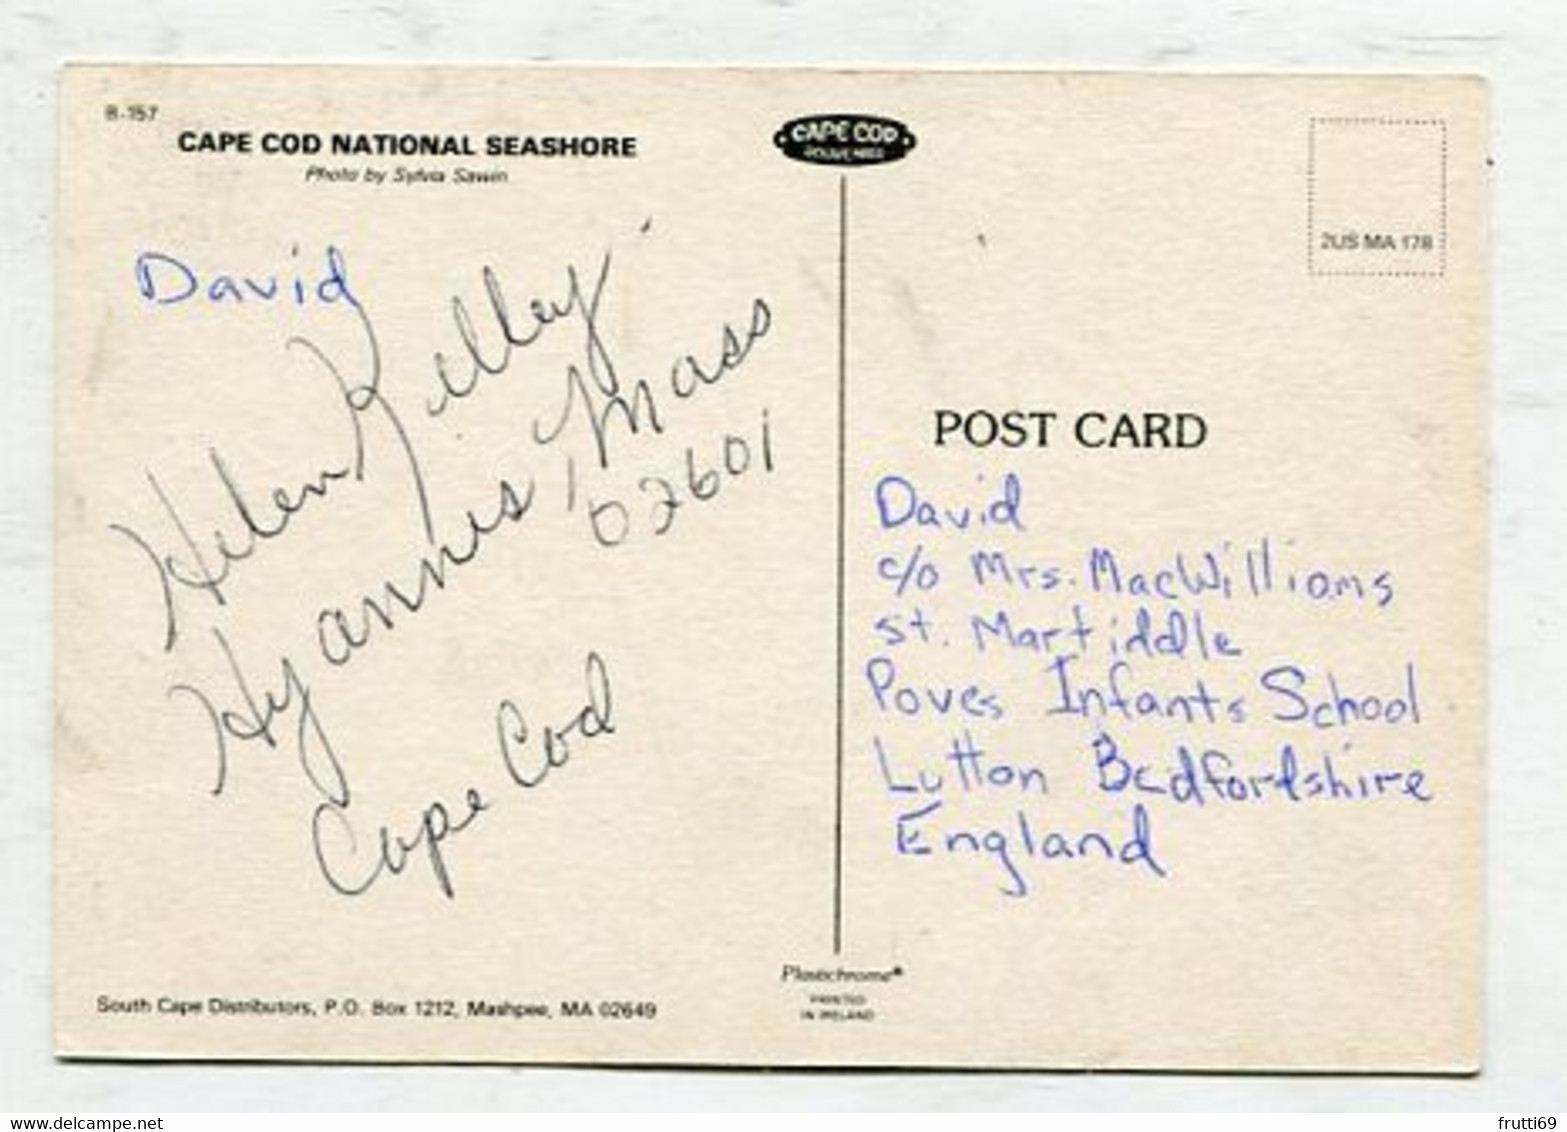 B-157
CAPE COD NATIONAL SEASHORE
Photo by Sylvia Sawin
David
Helen Kelley
Hyannis, Mass
02601
Cape Cod
South Cape Distributors, P.O. Box 1212, Mashpee, MA 02649
CAPE COD
2US MA 178
POST CARD
David
c/o Mrs. MacWilliams
st. Martiddle
Poves Infants School
Lutton Bedfordshire
England
Plastichrome®
PRINTED
IN IRELAND
delcampe.net
frutti69